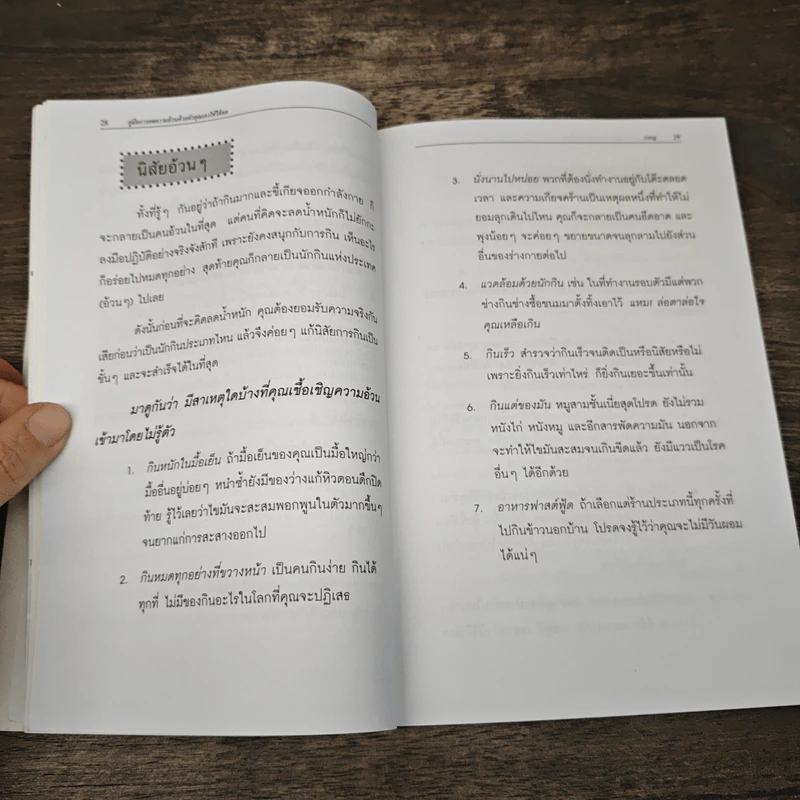 28
นิสัยอ้วนๆ
ทั้งที่รู้ๆ กันอยู่ว่าถ้ากินมากและขี้เกียจออกกำลังกาย ก็
จะกลายเป็นคนอ้วนในที่สุด แต่คนที่คิดจะลดน้ำหนักก็ไม่ยักกะ
ลงมือปฏิบัติอย่างจริงจังสักที เพราะยังคงสนุกกับการกิน เห็นอะไร
ก็อร่อยไปหมดทุกอย่าง สุดท้ายคุณก็กลายเป็นนักกินแห่งประเทศ
(อ้วนๆ) ไปเลย
ดังนั้นก่อนที่จะคิดลดน้ำหนัก คุณต้องยอมรับความจริงกัน
เสียก่อนว่าเป็นนักกินประเภทไหน แล้วจึงค่อยๆ แก้นิสัยการกินเป็น
ขั้นๆ และจะสำเร็จได้ในที่สุด
มาดูกันว่า มีสาเหตุใดบ้างที่คุณเชื้อเชิญความอ้วน
เข้ามาโดยไม่รู้ตัว
1. กินหนักในมื้อเย็น ถ้ามื้อเย็นของคุณเป็นมื้อใหญ่กว่า
มื้ออื่นอยู่บ่อยๆ หนำซ้ำยังมีของว่างแก้หิวตอนดึกปิด
ท้าย รู้ไว้เลยว่าไขมันจะสะสมพอกพูนในตัวมากขึ้นๆ
จนยากแก่การสะสางออกไป
2. กินหมดทุกอย่างที่ขวางหน้า เป็นคนกินง่าย กินได้
ทุกที่ ไม่มีของกินอะไรในโลกที่คุณจะปฏิเสธ
29
3. นั่งนานไปหน่อย พวกที่ต้องนั่งทำงานอยู่กับโต๊ะตลอด
เวลา และความเกียจคร้านเป็นเหตุผลหนึ่งที่ทำให้ไม่
ยอมลุกเดินไปไหน คุณก็จะกลายเป็นคนอืดอาด และ
พุงน้อยๆ จะค่อยๆ ขยายขนาดจนลุกลามไปยังส่วน
อื่นของร่างกายต่อไป
4. แวดล้อมด้วยนักกิน เช่น ในที่ทำงานรอบตัวมีแต่พวก
ช่างกินช่างซื้อขนมมาตั้งทิ้งเอาไว้ แหม! ล่อตาล่อใจ
คุณเหลือเกิน
5. กินเร็ว สำรวจว่ากินเร็วจนติดเป็นหรือนิสัยหรือไม่
เพราะยิ่งกินเร็วเท่าไหร่ ก็ยิ่งกินเยอะขึ้นเท่านั้น
6. กินแต่ของมัน หมูสามชั้นเนี่ยสุดโปรด ยังไม่รวม
หนังไก่ หนังหมู และอีกสารพัดความมัน นอกจาก
จะทำให้ไขมันสะสมจนเกินขีดแล้ว ยังมีแววเป็นโรค
อื่นๆ ได้อีกด้วย
7. อาหารฟาสต์ฟู้ด ถ้าเลือกแต่ร้านประเภทนี้ทุกครั้งที่
ไปกินข้าวนอกบ้าน โปรดจงรู้ไว้ว่าคุณจะไม่มีวันผอม
ได้แน่ๆ